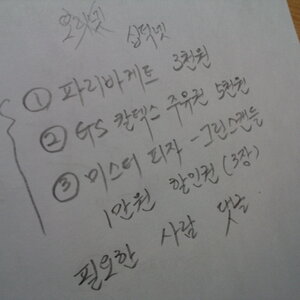 오리넷 삼덕넷
① 파리바게트 3천원
② GS 칼텍스 주유권 5천원
③ 미스터 피자 - 그린스캔들
1만원 할인권 (3장)
필요한 사람 댓글.